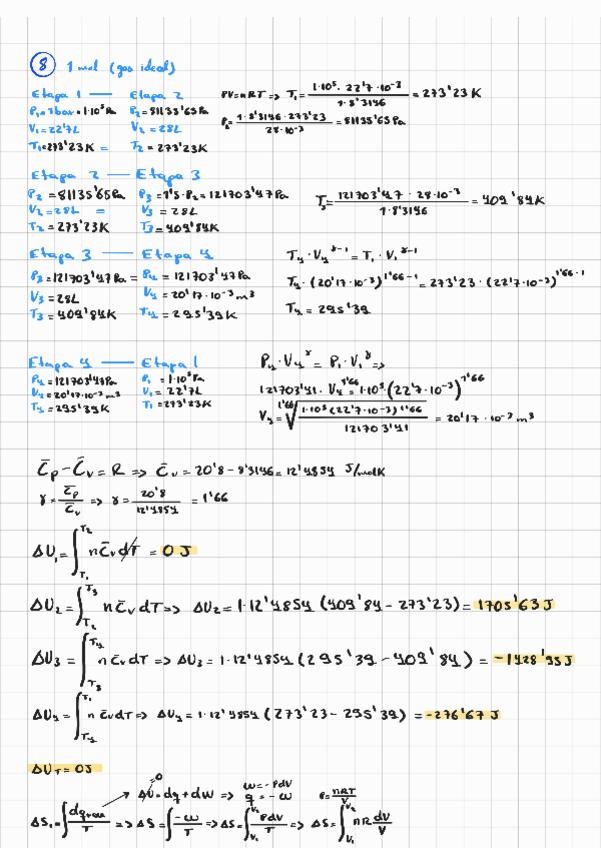 8 1 mol (gas ideal)
Etapa 1 — Etapa 2
P₁=1bar=1·10⁵Pa P₂=81135'65Pa
V₁=22'7L V₂=28L
T₁=273'23K = T₂=273'23K
PV=nRT => T₁= 1·10⁵·22'7·10⁻³ / 1·8'3146 = 273'23K
P₂= 1·8'3146·273'23 / 28·10⁻³ = 81135'65Pa
Etapa 2 — Etapa 3
P₂=81135'65Pa P₃=1'5·P₂=121703'47Pa
V₂=28L = V₃=28L
T₂=273'23K T₃=409'84K
T₃= 121703'47·28·10⁻³ / 1·8'3146 = 409'84K
Etapa 3 — Etapa 4
P₃=121703'47Pa = P₄=121703'47Pa
V₃=28L V₄=20'17·10⁻³m³
T₃=409'84K T₄=295'39K
T₄·V₄^γ⁻¹=T₁·V₁^γ⁻¹
T₄·(20'17·10⁻³)^1'66⁻¹=273'23·(22'7·10⁻³)^1'66⁻¹
T₄=295'39
Etapa 4 — Etapa 1
P₄=121703'47Pa P₁=1·10⁵Pa
V₄=20'17·10⁻³m³ V₁=22'7L
T₄=295'39K T₁=273'23K
P₄·V₄^γ=P₁·V₁^γ=>
121703'47·V₄^1'66=1·10⁵·(22'7·10⁻³)^1'66
V₄= ^1'66√(1·10⁵(22'7·10⁻³)^1'66 / 121703'47) = 20'17·10⁻³m³
C̄p-C̄v=R => C̄v=20'8-8'3146=12'4854 J/molK
γ= C̄p/C̄v => γ= 20'8 / 12'4854 = 1'66
ΔU₁=∫T₁T₂ nC̄vdT = 0J
ΔU₂=∫T₂T₃ nC̄vdT => ΔU₂=1·12'4854(409'84-273'23)=1705'63J
ΔU₃=∫T₃T₄ nC̄vdT => ΔU₃=1·12'4854(295'39-409'84)=-1428'95J
ΔU₄=∫T₄T₁ nC̄vdT => ΔU₄=1·12'4854(273'23-295'39)=-276'67J
ΔU_T=0J
ΔU=dq+dw => w=-PdV P= nRT/V
=0 q=-w
ΔS₁=∫dq rev/T => ΔS=∫-w/T => ΔS=∫V₁V₂ PdV/T => ΔS=∫V₁V₂ nR dV/V